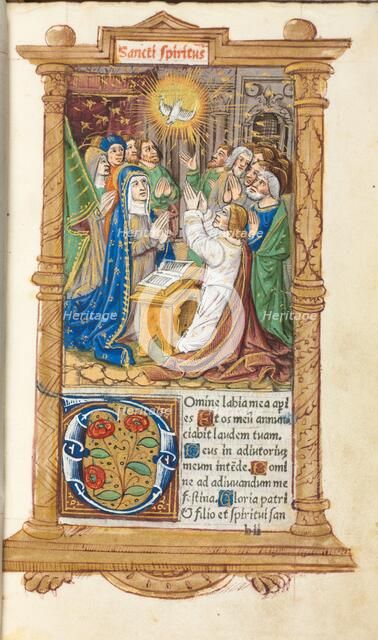 Sancti spiritus
Heritage
Heritage
Heritage
Heritage
Heritage
Heritage
Omine labia mea apies
Et os meū annunciabit laudem tuam.
Deus in adiutoriuz
meum intēde. Domine
ad adiuuandum me
festina. Gloria patri
& filio et spiritui san
bii